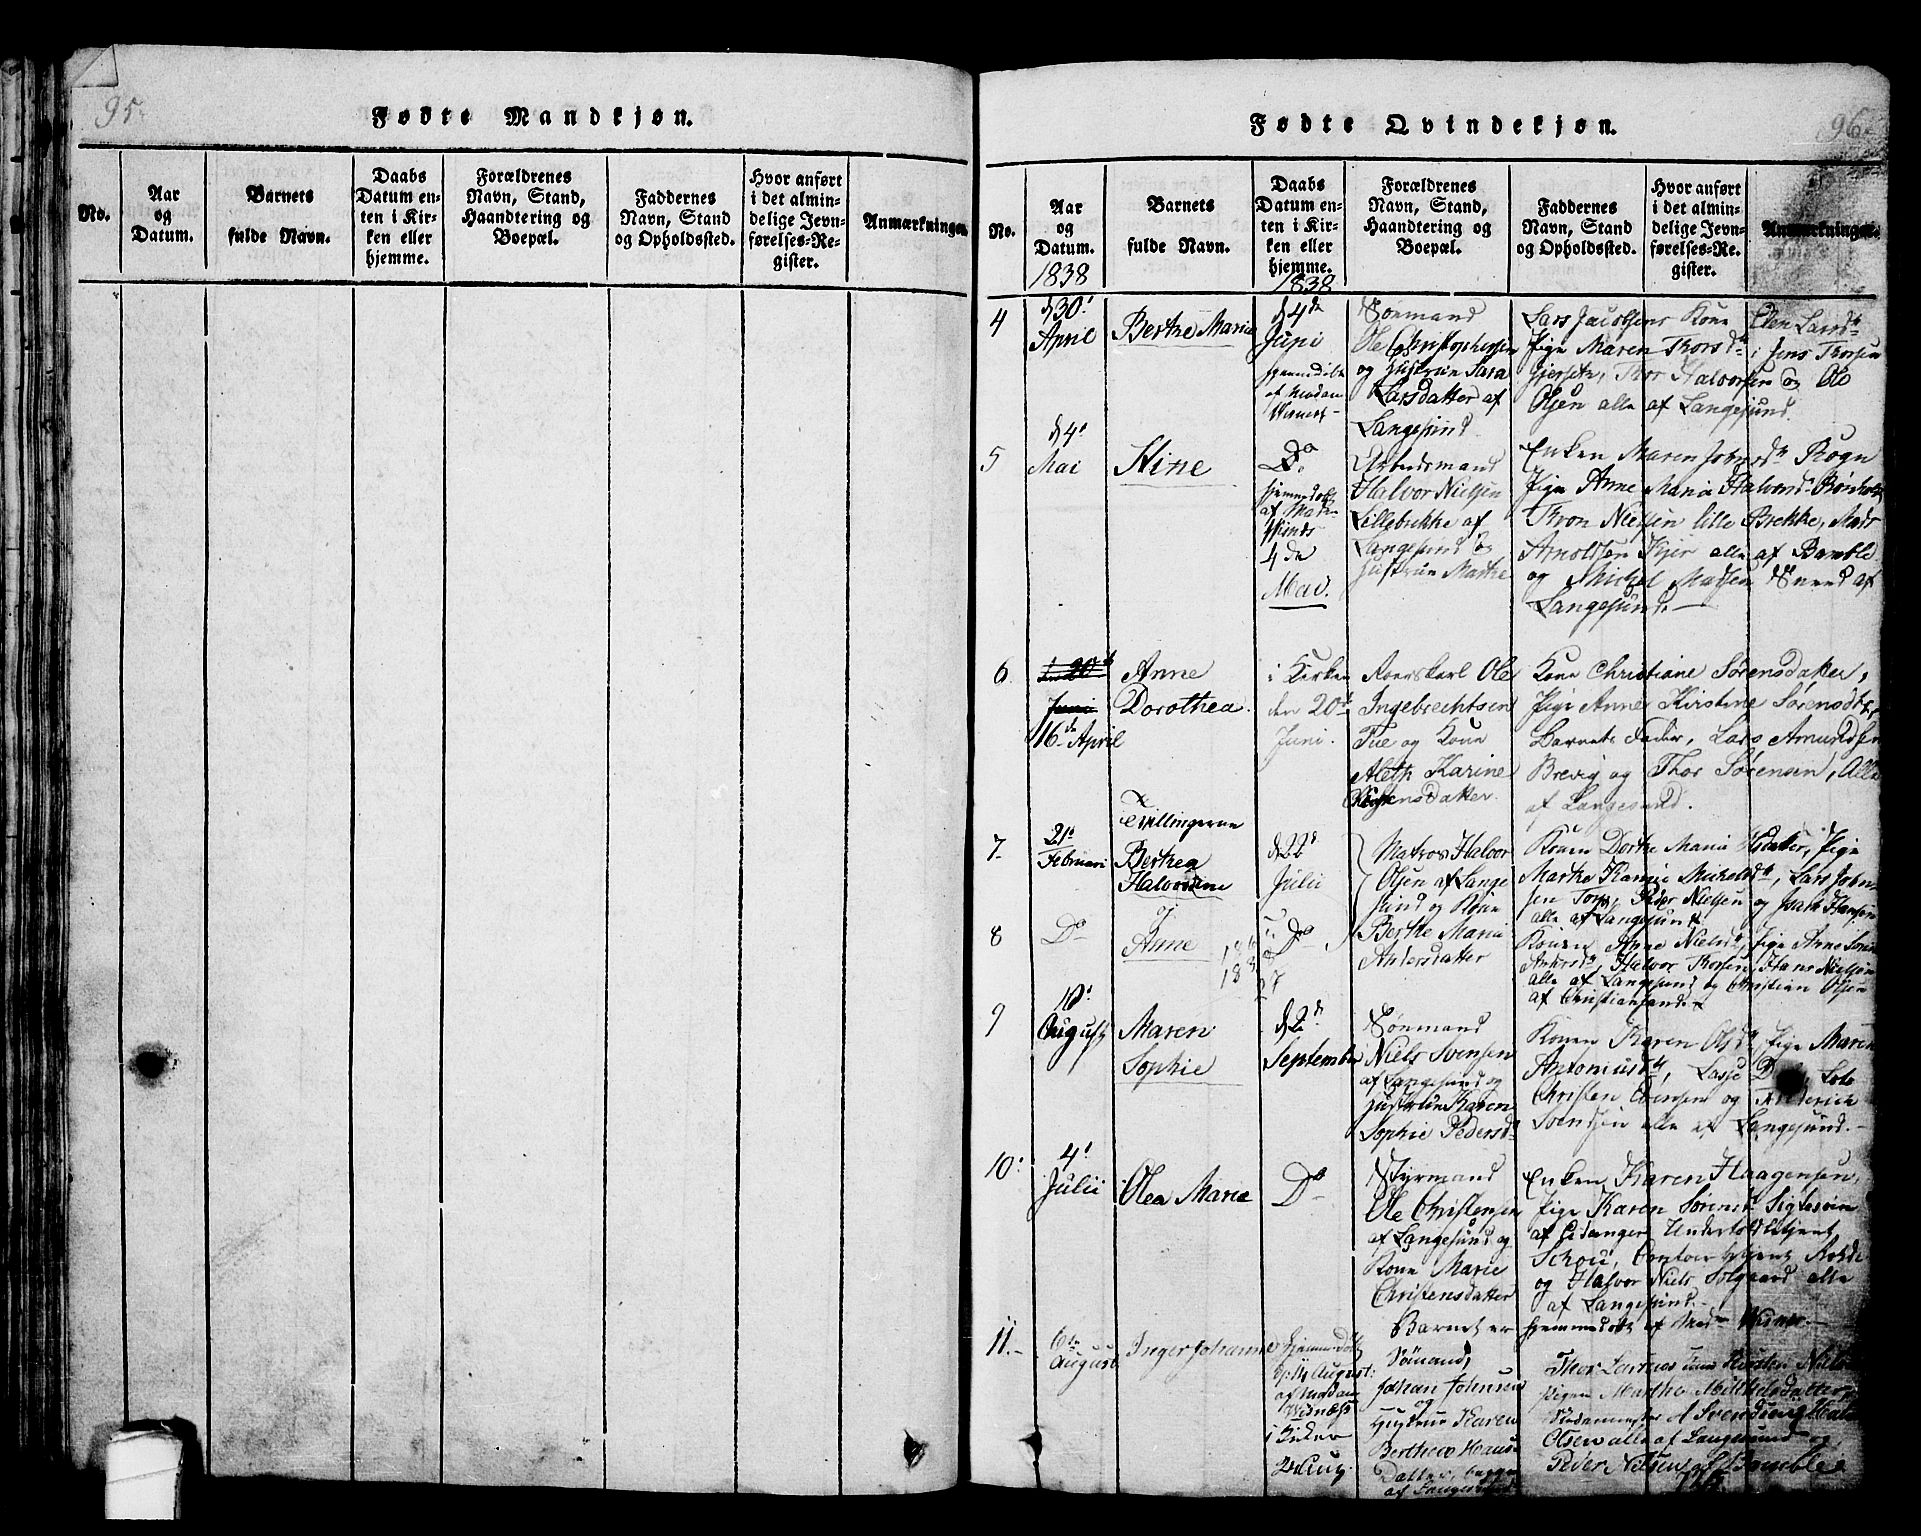 95.
Fødte Mandkjøn.
No.
Aar
og
Datum.
Barnets
fulde Navn.
Daabs
Datum en-
ten i Kir-
ken eller
hjemme.
Forældrenes
Navn, Stand,
Haandtering og
Boepæl.
Faddernes
Navn, Stand
og Opholdssted.
Hvor anført
i det almin-
delige Jevn-
førelses-Re-
gister.
Anmærkninger.
Fødte Qvindekjøn.
96.
No.
Aar
og
Datum.
1838
Barnets
fulde Navn.
Daabs
Datum en-
ten i Kir-
ken eller
hjemme.
1838
Forældrenes
Navn, Stand,
Haandtering og
Boepæl.
Faddernes
Navn, Stand
og Opholdssted.
Hvor anført
i det almin-
delige Jevn-
førelses-Re-
gister.
Anmærkninger.
4
d 30'
April
Berthe Marie
d 4de
Juni
hjemmedöbt
af Madam
Sömand
Ole Christophersen
og Hustrue Sara
Larsdatter af
Langesund
Lars Jacobsens Kone Elen Larsd.
Pige Maren Thorsd. Jens Thorsen
Thor Halvorsen og Ole
Olsen alle af Langesund.
5
d 4'
Mai
Stine
Do
hjemmedöbt
af Mad.
4de
Mai.
Arbeidsmand
Halvor Nielsen
Lillebrekke af
Langesund og
Hustrue Marthe
Enken Maren Jobsd. Rogn
Pige Anne Maria Halvorsd.
Thron Nielsen lille Brekke, Mads
Arnoldsen Kjer alle af Bamble
og Michel Madsen af
Langesund.
6.
Juni
16de April
Anne
Dorothea.
i Kirken
den 20de
Juni.
Roerskarl Ole
Ingebrechtsen
Tue og Kone
Aleth Karine
Kone Christiane Sørensdatter,
Pige Anne Kirstine Sørensdtr,
Barnets Fader, Lars Amundsen
Brevig og Thor Sørensen, Alle
af Langesund.
7.
21'
Februari
Tvillingerne
Berthea
Halvordine
d 22d
Julii
Matros Halvor
Olsen af Lange
sund og Kone
Berthe Maria
Andersdatter
Konen Dorthe Maria Pige
Marthe Karine Michelsd., Lars John-
sen Torp, Peder Nielsen og Isach Hansen
alle af Langesund
8
Do
Anne
Do
Konen Anne Nielsd., Pige Anne
Andersd., Halvor Thorsen, Hans Nielsen
alle af Langesund og Christian Olsen
af Christiansand.
9
10'
August
Maren
Sophie
d 2d
September
Sömand
Niels Svensen
af Langesund og
Hustrue Karen
Sophie Pedersd.
Konen Karen Olsd., Pige Maren
Antoniusd., Lasse
Christen Evensen og Frederich
Svendsen alle af Langesund.
10.
4'
Julii
Olea Marie
Do
Styrmand
Ole Christensen
af Langesund og
Kone Marie
Christensdatter
Enken Karen Haagensen,
Pige Karen Sørensd. Sigtesøen
af Eidanger, Undertoldbetjent
Schou, Contoirbetjent
og Halvor Niels. Solgaard alle
af Langesund.
Barnet er hjemmedöbt af Mad.
11.
6te
August
Inger Johanne
Hjemmedöbt
August
af Madam
i Kirken
Sömand,
Johan Johnsen
og
Hustrue Karen
Berthea Hans-
Datter, begge
af Langesund
Pigen Marthe Mikkelsdatter,
Olsen alle af Langesund og
Peder Nilsen af Bamble